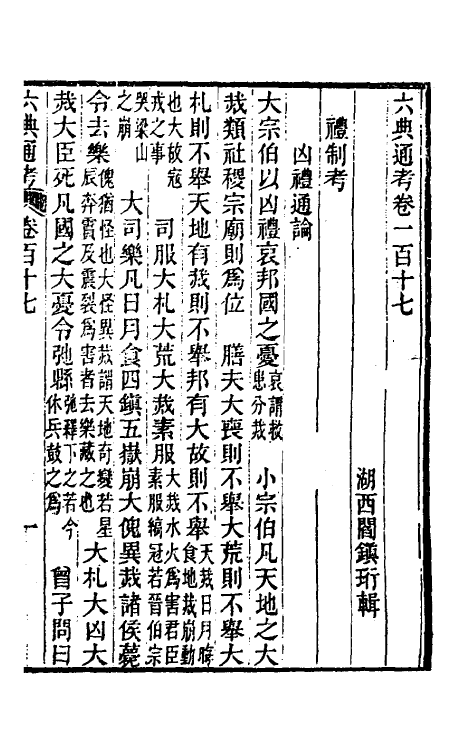 六典通考卷一百十七
湖西閻鎮珩輯
禮制考
凶禮通論
大宗伯以凶禮哀邦國之憂哀謂救患分烖 小宗伯凡天地之大
烖類社稷宗廟則為位 膳夫大喪則不舉大荒則不舉大
札則不舉天地有烖則不舉邦有大故則不舉天烖日月晦食地烖崩動
也大故寇戎之事 司服大札大荒大烖素服大烖水火為害君臣素服縞冠若晉伯宗
哭梁山之崩 大司樂凡日月食四鎮五嶽崩大傀異烖諸侯薨
令去樂傀猶怪也大怪異烖謂天地奇變若星辰奔霣及震裂為害者去樂藏之也 大札大凶大
烖大臣死凡國之大憂令弛縣弛釋下之若今休兵鼓之為 曾子問曰
六典通考 卷百十七 一